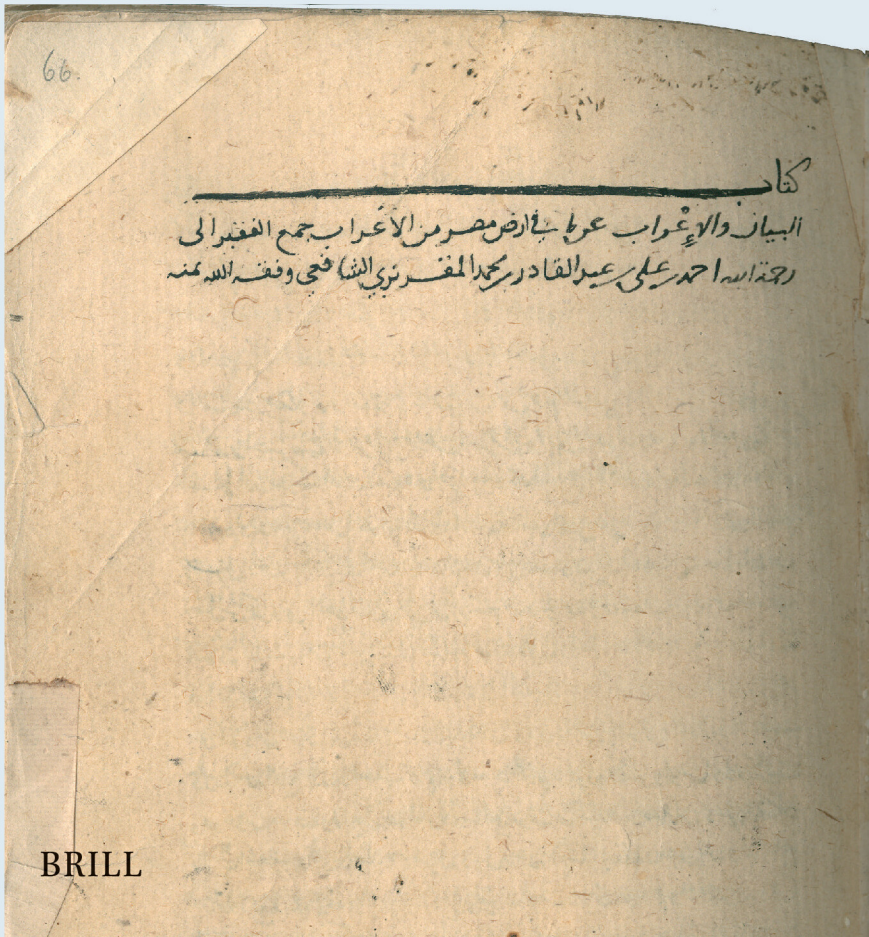 66.
كتاب
البيان والإعراب عن ما في ارض مصر من الاعراب جمع الفقير الى
رحمة الله احمد بن علي بن عبد القادر بن محمد المقريزي الشافعي وفقه الله بمنه
BRILL